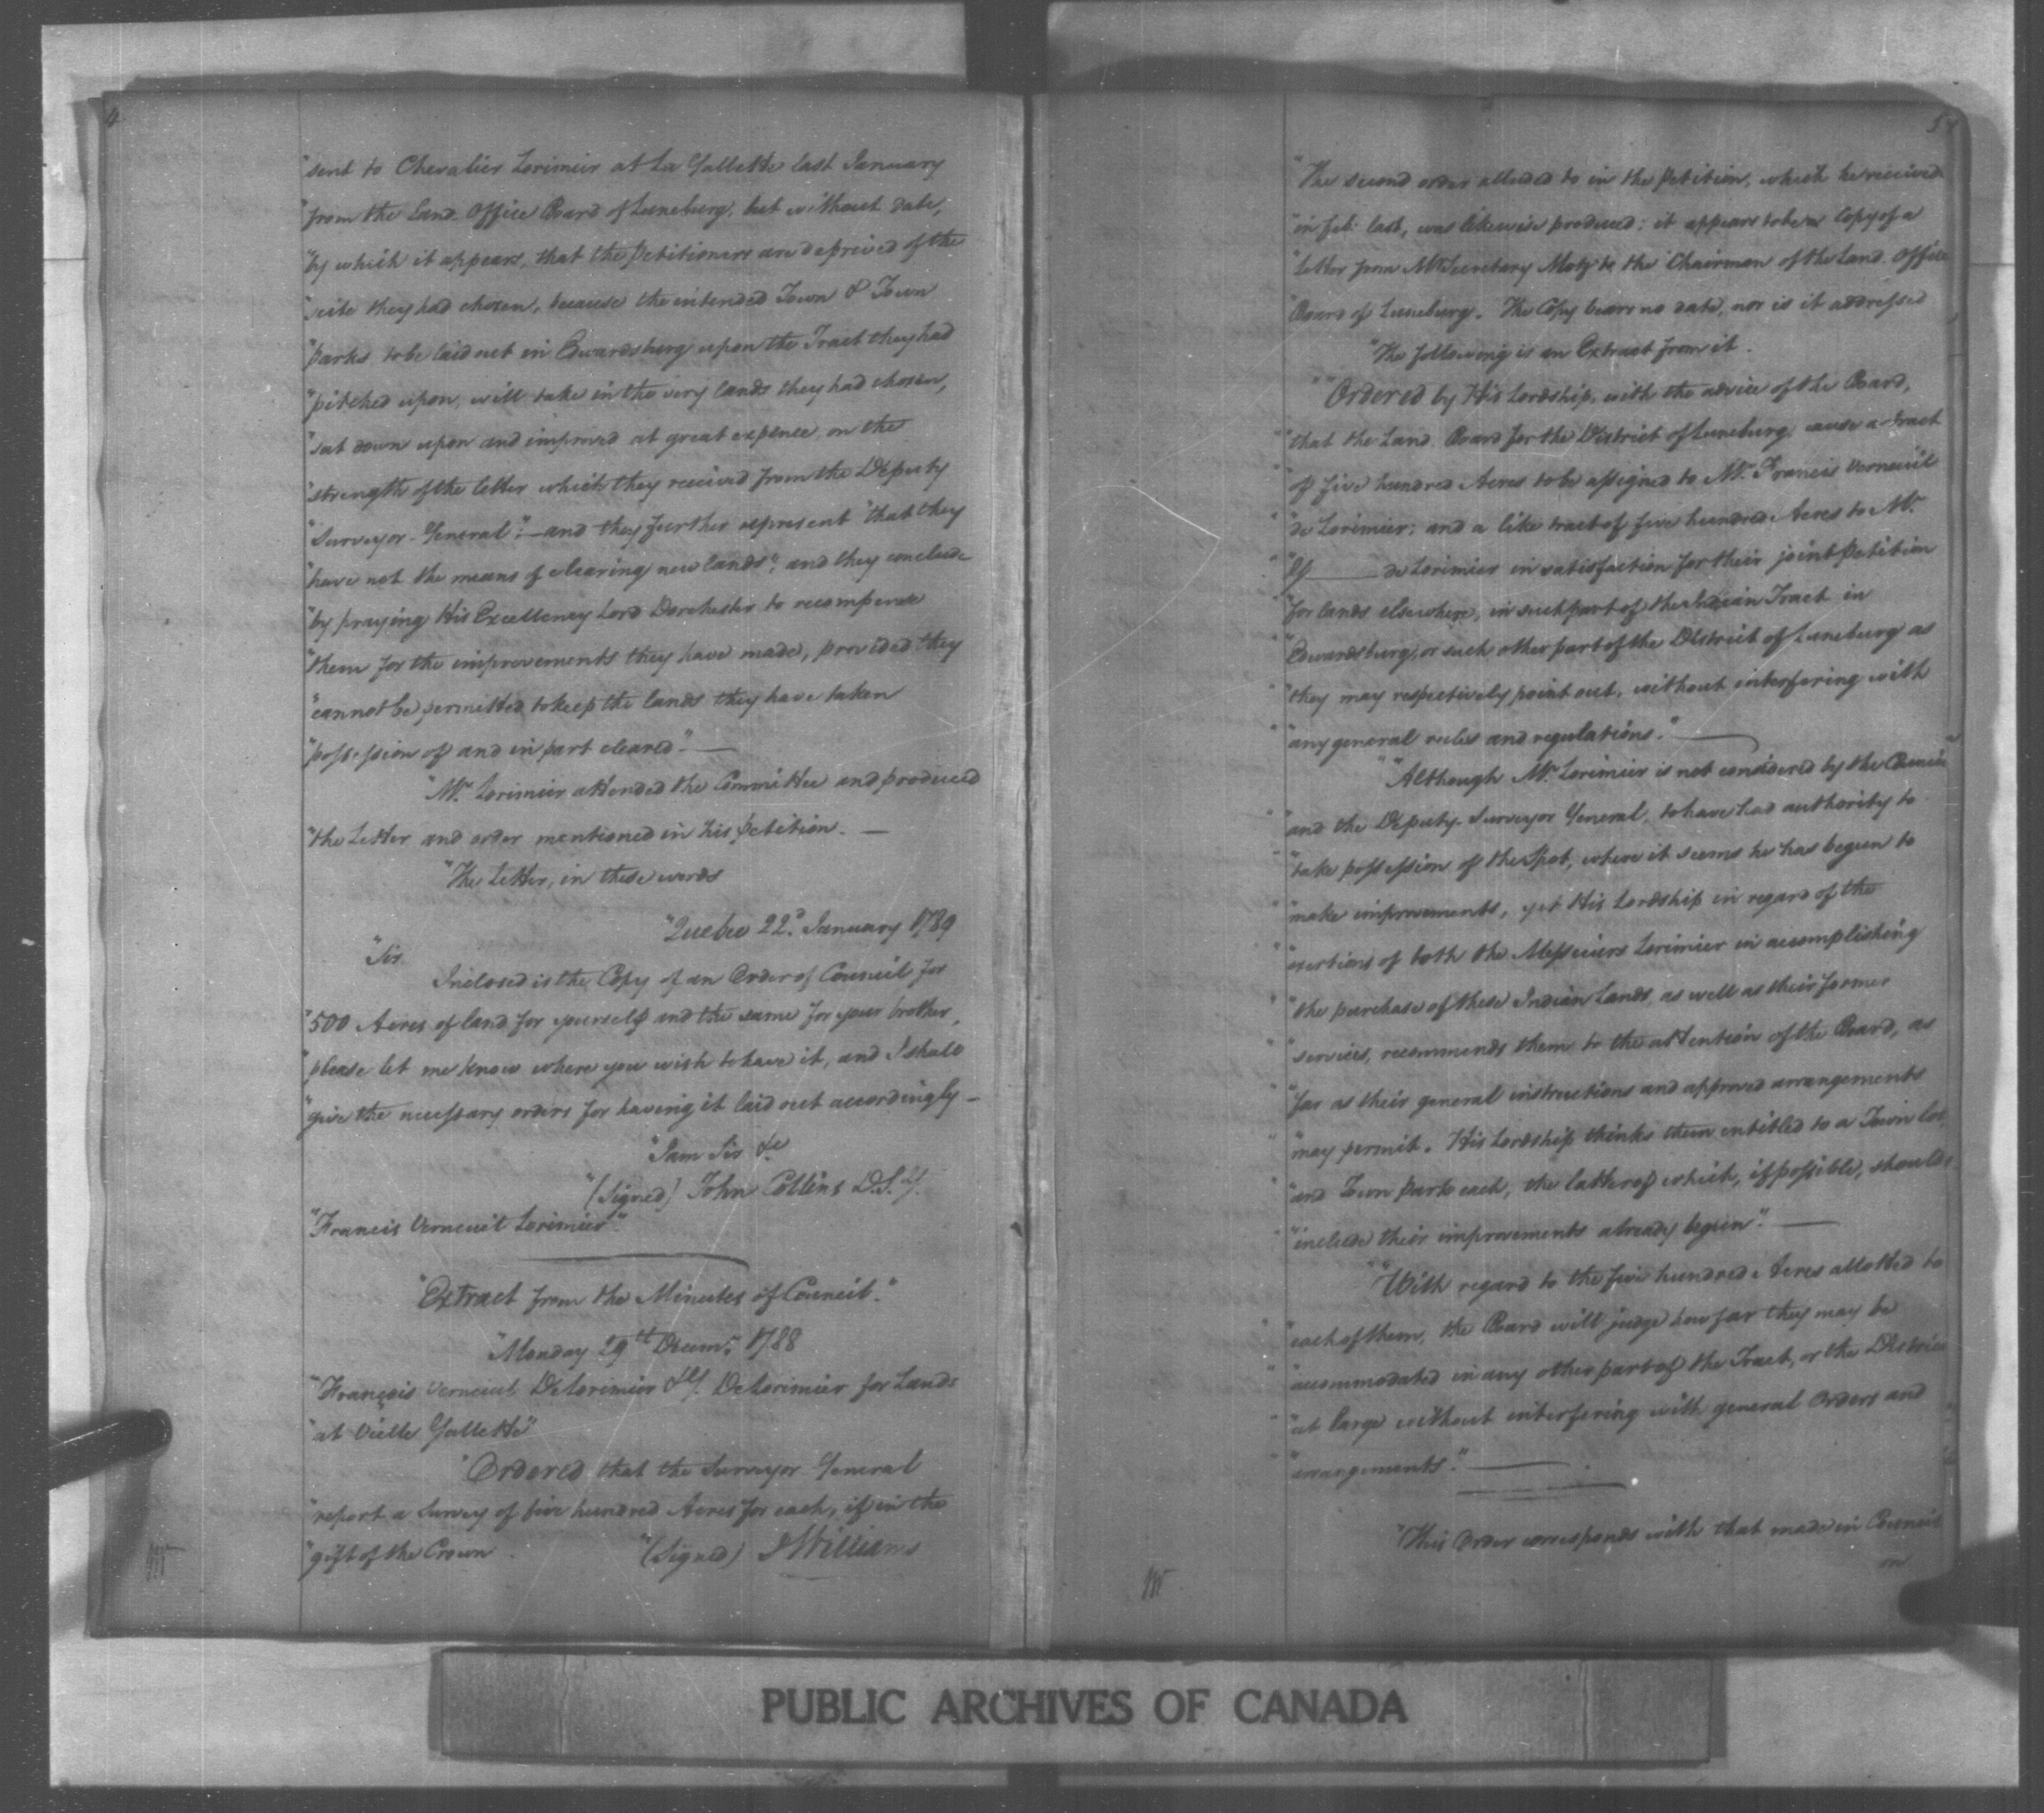 4
"sent to Chevalier Lorimier at La Gallette last January
"from the Land Office Board of Luneburg, but without date,
"by which it appears, that the Petitioners are deprived of the
"scite they had chosen, because the intended Town & Town
"parks to be laid out in Edwardsburg upon the Tract they had
"pitched upon, will take in the very lands they had chosen,
"sat down upon and improved at great expence, on the
"strength of the letter which they received from the Deputy
"Surveyor-General":—and they further represent "that they
"have not the means of clearing new lands", and they conclude
"by praying His Excellency Lord Dorchester to recompense
"them for the improvements they have made, provided they
"cannot be permitted to keep the lands they have taken
"possession of and in part cleared"—
"Mr. Lorimier attended the Committee and produced
"the Letter and order mentioned in his petition.—
"The Letter, in these words
"Quebec 22d. January 1789
"Sir
Inclosed is the Copy of an Order of Council for
"500 Acres of land for yourself and the same for your brother,
"please let me know where you wish to have it, and I shall
"give the necessary orders for having it laid out accordingly—
"I am Sir &c
"(Signed) John Collins D.S.G.
"Francis Verneuil Lorimier".
"Extract from the Minutes of Council."
"Monday 29th Decemr. 1788
"François Verneuil DeLorimier & G. DeLorimier for Lands
"at Vielle Gallette"
"Ordered that the Surveyor General
"report a Survey of five hundred Acres for each, if in the
"gift of the Crown. "(Signed) J Williams
5
"The second order alluded to in the Petition, which he received
"in feb: last, was likewise produced; it appears to be a Copy of a
"Letter from Mr. Secretary Motz to the Chairman of the Land Office
"Board of Luneburg. The Copy bears no date, nor is it addressed
"The following is an Extract from it.
""Ordered by His Lordship, with the advice of the Board,
""that the Land Board for the District of Luneburg, cause a tract
""of five hundred Acres to be assigned to Mr. Francis Verneuil
""de Lorimier; and a like tract of five hundred Acres to Mr.
""G—— de Lorimier in satisfaction for their joint Petition
""for lands elsewhere, in such part of the Indian Tract in
""Edwardsburg, or such other part of the District of Luneburg as
""they may respectively point out, without interfering with
""any general rules and regulations."—
""Although Mr. Lorimier is not considered by the Council
""and the Deputy Surveyor General, to have had authority to
""take possession of the Spot, where it seems he has begun to
""make improvements, yet His Lordship in regard of the
""exertions of both the Messieurs Lorimier in accomplishing
""the purchase of these Indian Lands, as well as their former
""services, recommends them to the attention of the Board, as
""far as their general instructions and approved arrangements
""may permit. His Lordship thinks them entitled to a Town lot,
""and Town Park each, the latter of which, if possible, should
""include their improvements already begun".—
""With regard to the five hundred Acres allotted to
""each of them, the Board will judge how far they may be
""accommodated in any other part of the Tract, or the District
""at large without interfering with general orders and
""arrangements."—
"This Order corresponds with that made in Council
on
PUBLIC ARCHIVES OF CANADA